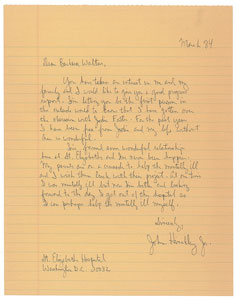 March 84
Dear Barbara Walters,
You have taken an interest in me and my
family and I would like to give you a good progress
report. I'm letting you be the "first" person in
the outside world to know that I have gotten over
the obsession with Jodie Foster. For the past year
I have been free from Jodie and my life without
her is wonderful.
I've formed some wonderful relationships
here at St. Elizabeths and I've never been happier.
My parents are on a crusade to help the mentally ill
and I wish them luck with their project. At one time
I was mentally ill but now I'm better and looking
forward to the day I get out of the hospital so
I can perhaps help the mentally ill myself.
Sincerely,
John Hinckley Jr.
St. Elizabeths Hospital
Washington D.C. 20032